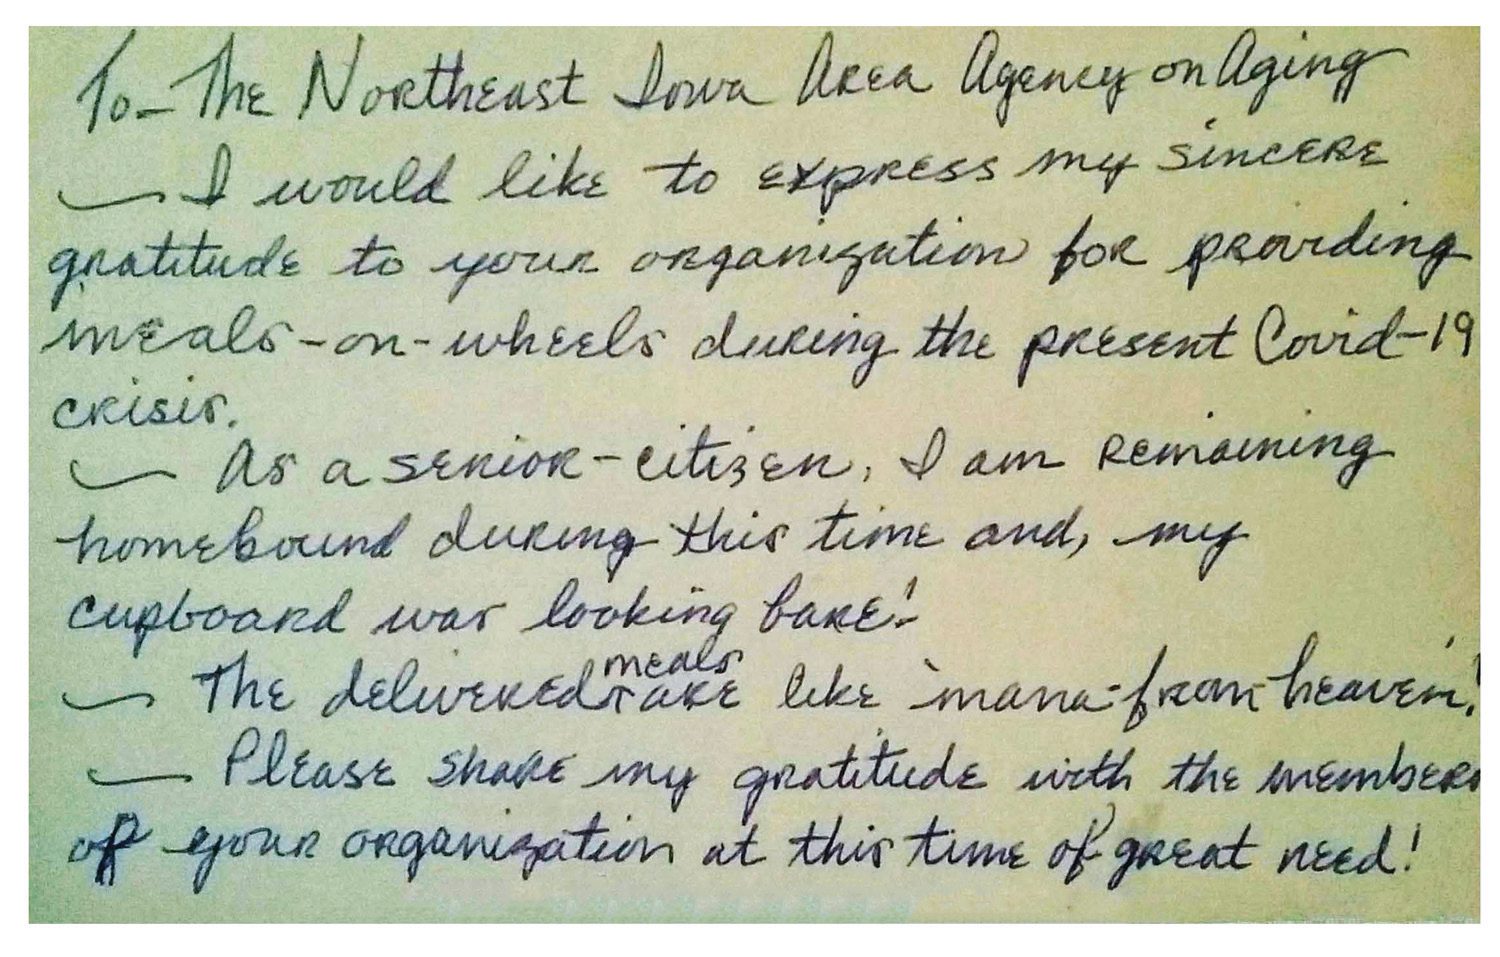 To - The Northeast Iowa Area Agency on Aging
I would like to express my sincere
gratitude to your organization for providing
meals-on-wheels during the present Covid-19
crisis.
As a senior-citizen, I am remaining
homebound during this time and, my
cupboard was looking bare!
meals
The delivered are like 'mana-from-heaven'!
Please share my gratitude with the members
of your organization at this time of great need!